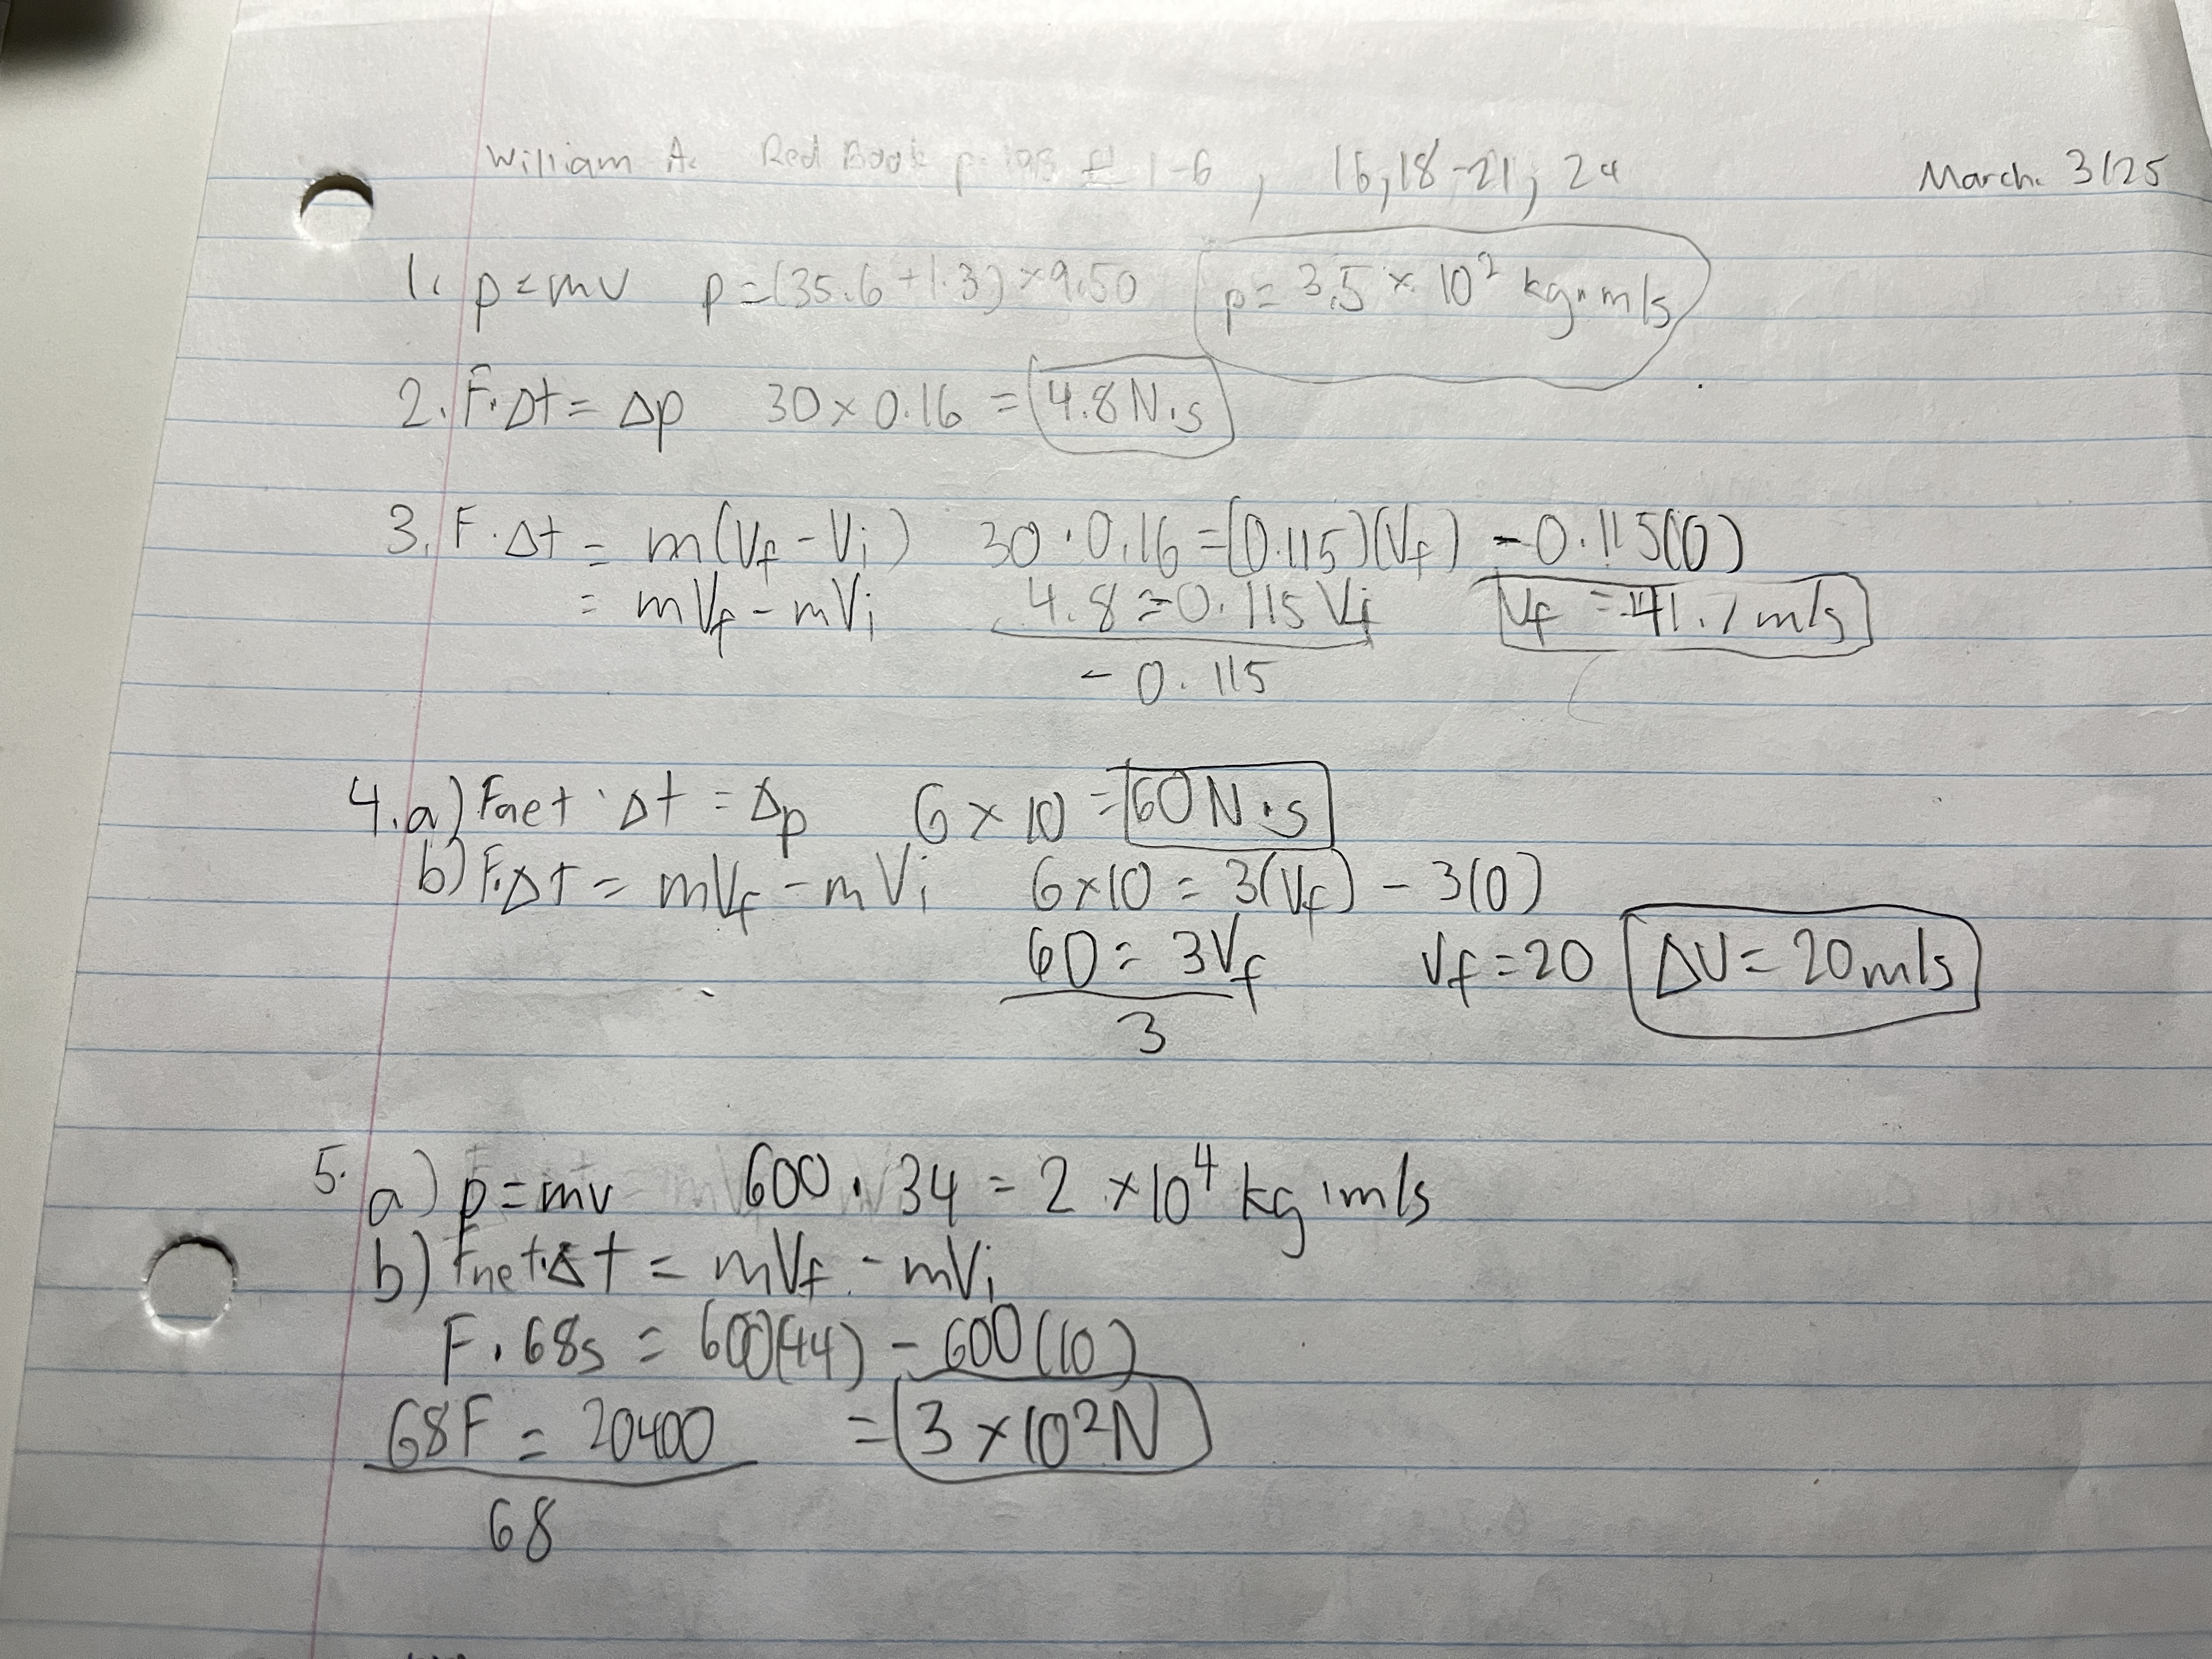 William A. Red Book p. 193 # 1-6, 16, 18-21, 24 March. 3/25
1. p=mv p=(35.6+1.3)×9.50 p= 3.5 × 10² kg·m/s
2. F·Δt= Δp 30×0.16 = 4.8N·s
3. F·Δt = m(Vf-Vi) 30·0.16=(0.115)(Vf) -0.115(0)
= mVf-mVi 4.8=0.115Vf Vf =41.7m/s
-0.115
4.a) Fnet·Δt = Δp 6×10 =60N·s
b) F·Δt = mVf-mVi 6×10 = 3(Vf) - 3(0)
60= 3Vf Vf=20 ΔV= 20m/s
3
5. a) p=mv 600·34 = 2 ×10⁴ kg·m/s
b) Fnet·Δt = mVf - mVi
F·68s = 600(44) - 600(10)
68F = 20400 = 3×10²N
68